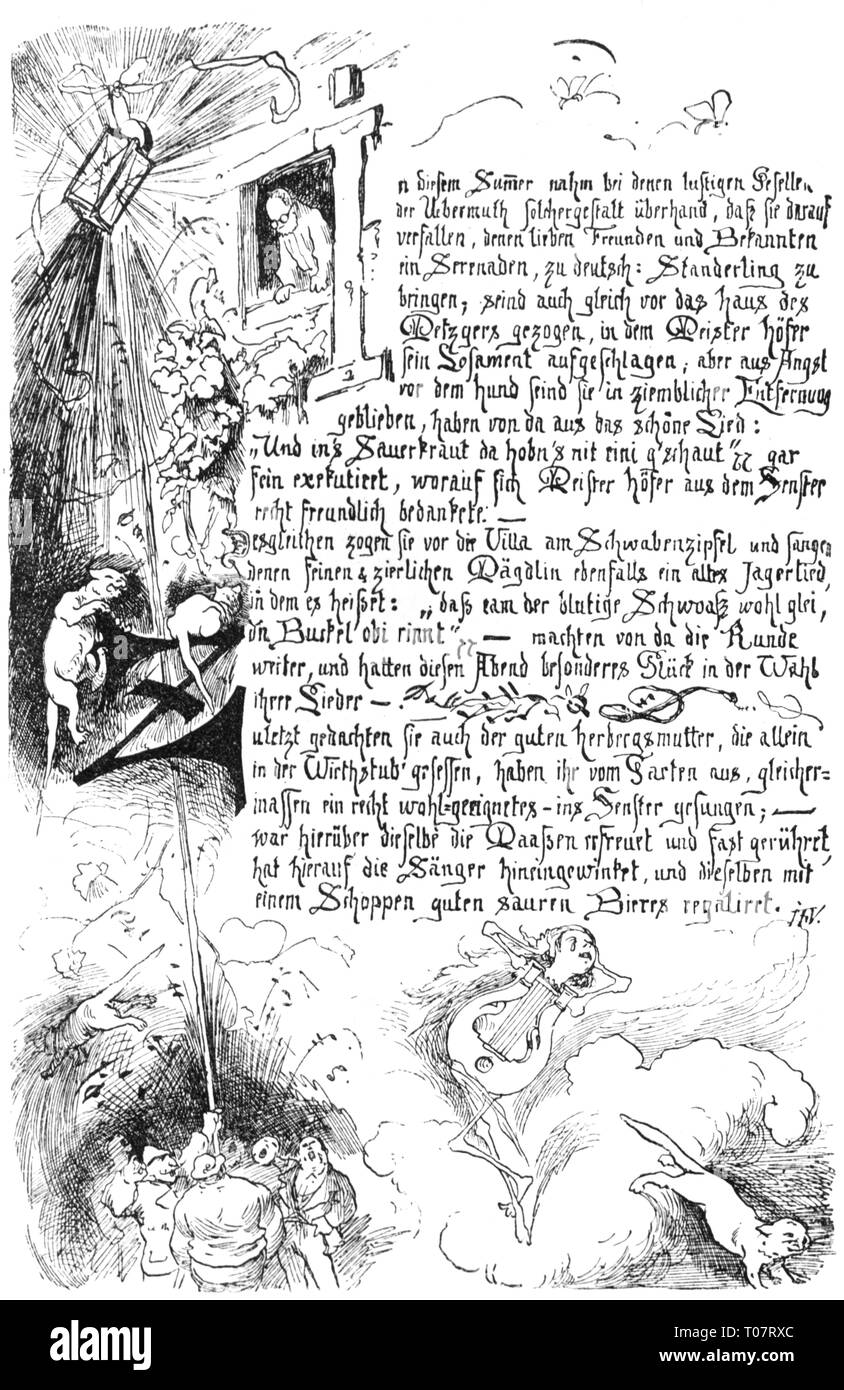 In diesem Sum̄er nahm bei denen lustigen Gesellen
der Übermuth solchergestalt überhand, daß sie darauf
verfallen, denen lieben Freunden und Bekannten
ein Serenaden, zu deutsch: Standerling zu
bringen; seind auch gleich vor das haus des
Metzgers gezogen, in dem Meister Höfer
sein Losament aufgeschlagen; aber aus Angst
vor dem hund seind sie in ziemblicher Entfernung
geblieben, haben von da aus das schöne Lied:
„Und in's Sauerkraut da hobn's nit eini g'schaut" gar
fein exekutiret, worauf sich Meister Höfer aus dem Fenster
recht freundlich bedankete. —
Desgleichen zogen sie vor die Villa am Schwabenzipfel und sangen
denen feinen & zierlichen Mägdlin ebenfalls ein altes Jagerlied,
in dem es heißet: „daß eam der blutige Schwoaß wohl glei,
ön Buckel obi rinnt" — machten von da die Runde
weiter, und hatten diesen Abend besonderes Glück in der Wahl
ihrer Lieder —.
Zuletzt gedachten sie auch der guten herbergsmutter, die allein
in der Wirthstub' gesessen, haben ihr vom Garten aus, gleicher-
massen ein recht wohl=geeignetes - ins Fenster gesungen; —
war hierüber dieselbe die Maaßen erfreuet und fast gerühret,
hat hierauf die Sänger hineingewinket, und dieselben mit
einem Schoppen guten sauren Bieres regaliret.
a
alamy
alamy
Image ID: T07RXC
www.alamy.com